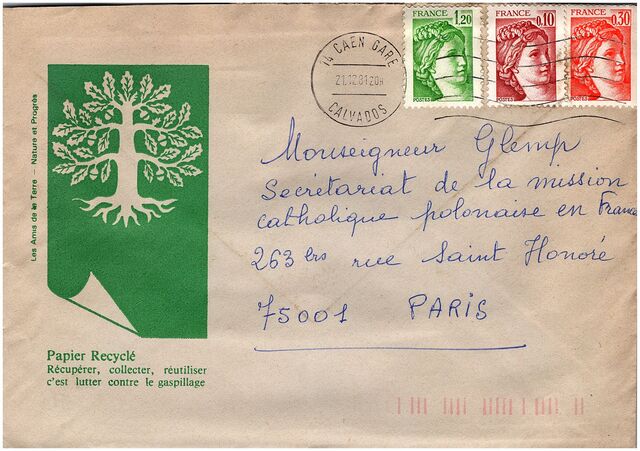 14 CAEN GARE
21.12.81 20H
CALVADOS
FRANCE 1,20
POSTES
FRANCE 0,10
POSTES
FRANCE 0,30
POSTES
Les Amis de la Terre – Nature et Progrès
Monseigneur Glemp
Secrétariat de la mission
catholique polonaise en France
263 bis rue Saint Honoré
75001 PARIS
Papier Recyclé
Récupérer, collecter, réutiliser
c'est lutter contre le gaspillage